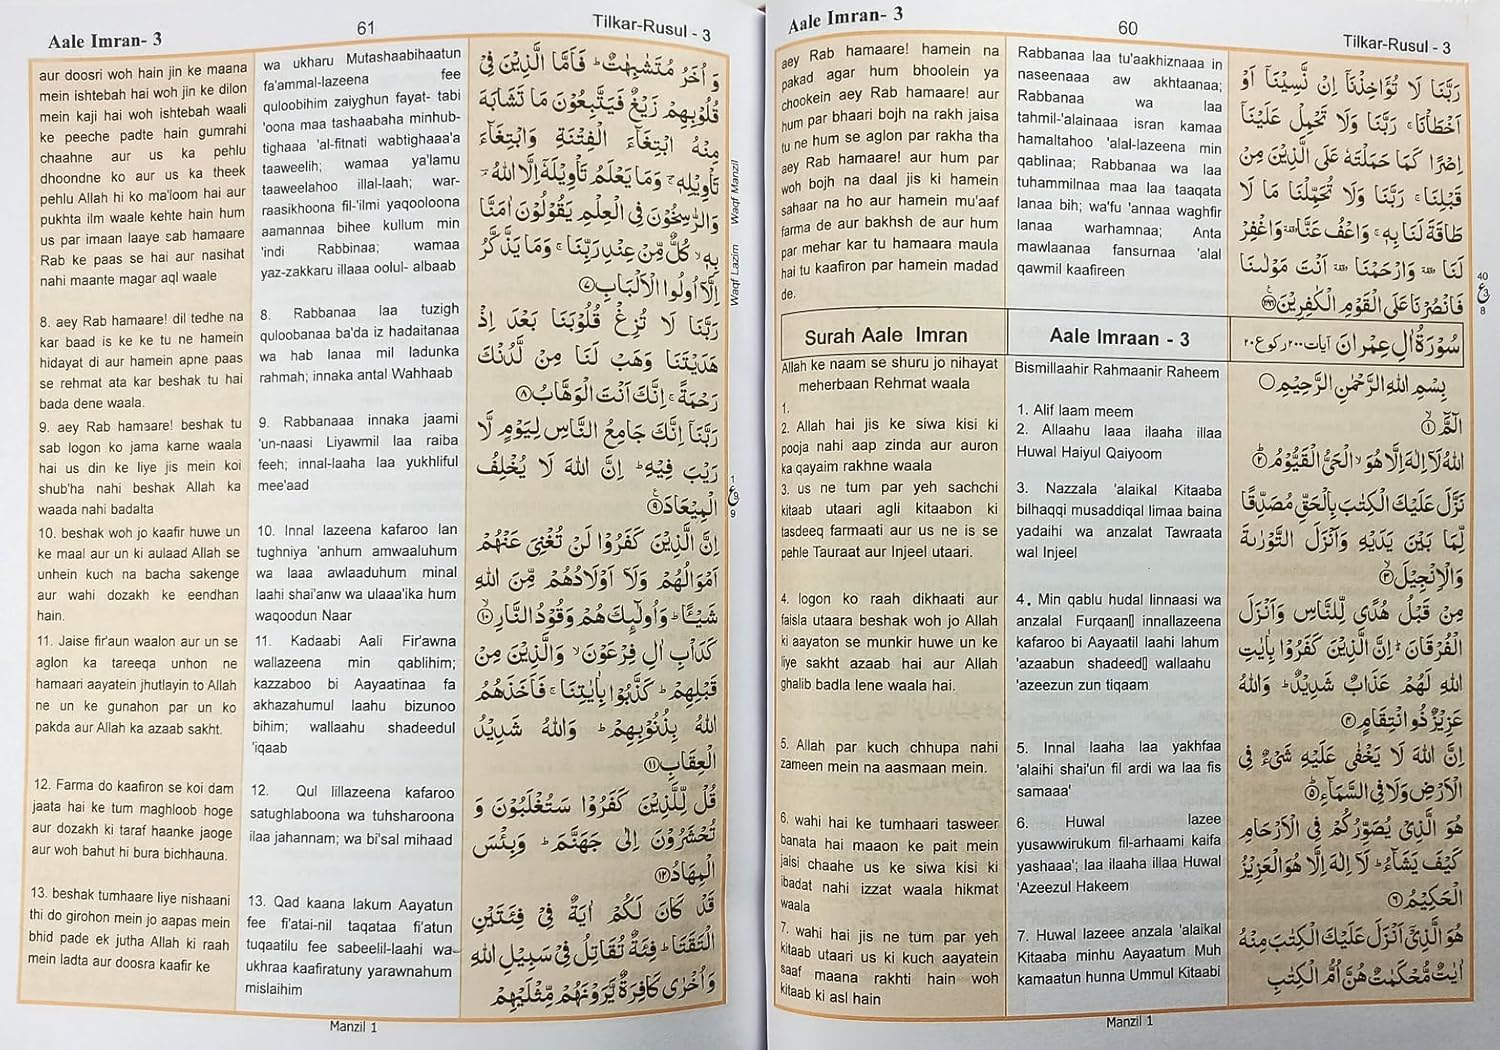 Aale Imran- 3
60
Tilkar-Rusul - 3
رَبَّنَا لَا تُؤَاخِذْنَآ اِنْ نَّسِيْنَآ اَوْ
اَخْطَأْنَا ۚ رَبَّنَا وَلَا تَحْمِلْ عَلَيْنَآ
اِصْرًا كَمَا حَمَلْتَهٗ عَلَى الَّذِيْنَ مِنْ
قَبْلِنَا ۚ رَبَّنَا وَلَا تُحَمِّلْنَا مَا لَا
طَاقَةَ لَنَا بِهٖ ۚ وَاعْفُ عَنَّا ۥ وَاغْفِرْ
لَنَا ۥ وَارْحَمْنَا ۥ اَنْتَ مَوْلٰىنَا
فَانْصُرْنَا عَلَى الْقَوْمِ الْكٰفِرِيْنَ ﴿۲۸۶﴾
40
ع 3
8
سُوْرَةُ اٰلِ عِمْرَانَ آیات ۲۰۰ رکوع ۲۰
بِسْمِ اللهِ الرَّحْمٰنِ الرَّحِيْمِ
الٓمّٓ ۙ﴿۱﴾
اللهُ لَآ اِلٰهَ اِلَّا هُوَ ۙ الْحَىُّ الْقَيُّوْمُ ؕ﴿۲﴾
نَزَّلَ عَلَيْكَ الْكِتٰبَ بِالْحَقِّ مُصَدِّقًا
لِّمَا بَيْنَ يَدَيْهِ وَاَنْزَلَ التَّوْرٰىةَ
وَالْاِنْجِيْلَ ۙ﴿۳﴾
مِنْ قَبْلُ هُدًى لِّلنَّاسِ وَاَنْزَلَ
الْفُرْقَانَ ؕ اِنَّ الَّذِيْنَ كَفَرُوْا بِاٰيٰتِ
اللهِ لَهُمْ عَذَابٌ شَدِيْدٌ ؕ وَاللهُ
عَزِيْزٌ ذُو انْتِقَامٍ ﴿۴﴾
اِنَّ اللهَ لَا يَخْفٰى عَلَيْهِ شَىْءٌ فِى
الْاَرْضِ وَلَا فِى السَّمَآءِ ؕ﴿۵﴾
هُوَ الَّذِىْ يُصَوِّرُكُمْ فِى الْاَرْحَامِ
كَيْفَ يَشَآءُ ؕ لَآ اِلٰهَ اِلَّا هُوَ الْعَزِيْزُ
الْحَكِيْمُ ﴿۶﴾
هُوَ الَّذِىْٓ اَنْزَلَ عَلَيْكَ الْكِتٰبَ مِنْهُ
اٰيٰتٌ مُّحْكَمٰتٌ هُنَّ اُمُّ الْكِتٰبِ
Rabbanaa laa tu'aakhiznaaa in
naseenaaa aw akhtaanaa;
Rabbanaa wa laa
tahmil-'alainaaa isran kamaa
hamaltahoo 'alal-lazeena min
qablinaa; Rabbanaa wa laa
tuhammilnaa maa laa taaqata
lanaa bih; wa'fu 'annaa waghfir
lanaa warhamnaa; Anta
mawlaanaa fansurnaa 'alal
qawmil kaafireen
Aale Imraan - 3
Bismillaahir Rahmaanir Raheem
1. Alif laam meem
2. Allaahu laaa ilaaha illaa
Huwal Haiyul Qaiyoom
3. Nazzala 'alaikal Kitaaba
bilhaqqi musaddiqal limaa baina
yadaihi wa anzalat Tawraata
wal Injeel
4. Min qablu hudal linnaasi wa
anzalal Furqaan▯ innallazeena
kafaroo bi Aayaatil laahi lahum
'azaabun shadeed▯ wallaahu
'azeezun zun tiqaam
5. Innal laaha laa yakhfaa
'alaihi shai'un fil ardi wa laa fis
samaaa'
6. Huwal lazee
yusawwirukum fil-arhaami kaifa
yashaaa'; laa ilaaha illaa Huwal
'Azeezul Hakeem
7. Huwal lazeee anzala 'alaikal
Kitaaba minhu Aayaatum Muh
kamaatun hunna Ummul Kitaabi
aey Rab hamaare! hamein na
pakad agar hum bhoolein ya
chookein aey Rab hamaare! aur
hum par bhaari bojh na rakh jaisa
tu ne hum se aglon par rakha tha
aey Rab hamaare! aur hum par
woh bojh na daal jis ki hamein
sahaar na ho aur hamein mu'aaf
farma de aur bakhsh de aur hum
par mehar kar tu hamara maula
hai tu kaafiron par hamein madad
de.
Surah Aale Imran
Allah ke naam se shuru jo nihayat
meherbaan Rehmat waala
1.
2. Allah hai jis ke siwa kisi ki
pooja nahi aap zinda aur auron
ka qayaim rakhne waala
3. us ne tum par yeh sachchi
kitaab utaari agli kitaabon ki
tasdeeq farmaati aur us ne is se
pehle Tauraat aur Injeel utaari.
4. logon ko raah dikhaati aur
faisla utaara beshak woh jo Allah
ki aayaton se munkir huwe un ke
liye sakht azaab hai aur Allah
ghalib badla lene waala hai.
5. Allah par kuch chhupa nahi
zameen mein na aasmaan mein.
6. wahi hai ke tumhaari tasweer
banata hai maaon ke pait mein
jaisi chaahe us ke siwa kisi ki
ibadat nahi izzat waala hikmat
waala
7. wahi hai jis ne tum par yeh
kitaab utaari us ki kuch aayatein
saaf maana rakhti hain woh
kitaab ki asl hain
Manzil 1
Aale Imran- 3
61
Tilkar-Rusul - 3
وَ اُخَرُ مُتَشٰبِهٰتٌ ؕ فَاَمَّا الَّذِيْنَ فِىْ
قُلُوْبِهِمْ زَيْغٌ فَيَتَّبِعُوْنَ مَا تَشَابَهَ
مِنْهُ ابْتِغَآءَ الْفِتْنَةِ وَابْتِغَآءَ
تَاْوِيْلِهٖ ۚ وَمَا يَعْلَمُ تَاْوِيْلَهٗٓ اِلَّا اللهُ ۘ
وَالرّٰسِخُوْنَ فِى الْعِلْمِ يَقُوْلُوْنَ اٰمَنَّا
بِهٖ ۙ كُلٌّ مِّنْ عِنْدِ رَبِّنَا ۚ وَمَا يَذَّكَّرُ
اِلَّآ اُولُوا الْاَلْبَابِ ﴿۷﴾
رَبَّنَا لَا تُزِغْ قُلُوْبَنَا بَعْدَ اِذْ
هَدَيْتَنَا وَهَبْ لَنَا مِنْ لَّدُنْكَ
رَحْمَةً ۚ اِنَّكَ اَنْتَ الْوَهَّابُ ﴿۸﴾
رَبَّنَآ اِنَّكَ جَامِعُ النَّاسِ لِيَوْمٍ لَّا
رَيْبَ فِيْهِ ؕ اِنَّ اللهَ لَا يُخْلِفُ
الْمِيْعَادَ ﴿۹﴾
اِنَّ الَّذِيْنَ كَفَرُوْا لَنْ تُغْنِىَ عَنْهُمْ
اَمْوَالُهُمْ وَلَآ اَوْلَادُهُمْ مِّنَ اللهِ
شَيْـًٔا ؕ وَاُولٰٓئِكَ هُمْ وَقُوْدُ النَّارِ ۙ﴿۱۰﴾
كَدَاْبِ اٰلِ فِرْعَوْنَ ۙ وَالَّذِيْنَ مِنْ
قَبْلِهِمْ ؕ كَذَّبُوْا بِاٰيٰتِنَا ۚ فَاَخَذَهُمُ
اللهُ بِذُنُوْبِهِمْ ؕ وَاللهُ شَدِيْدُ
الْعِقَابِ ﴿۱۱﴾
قُلْ لِّلَّذِيْنَ كَفَرُوْا سَتُغْلَبُوْنَ وَ
تُحْشَرُوْنَ اِلٰى جَهَنَّمَ ؕ وَبِئْسَ
الْمِهَادُ ﴿۱۲﴾
قَدْ كَانَ لَكُمْ اٰيَةٌ فِىْ فِئَتَيْنِ
الْتَقَتَا ؕ فِئَةٌ تُقَاتِلُ فِىْ سَبِيْلِ اللهِ
وَاُخْرٰى كَافِرَةٌ يَّرَوْنَهُمْ مِّثْلَيْهِمْ
Waqf Lazim Waqf Manzil
1
ع 9
9
wa ukharu Mutashaabihaatun
fa'ammal-lazeena fee
quloobihim zaiyghun fayat- tabi
'oona maa tashaabaha minhub-
tighaaa 'al-fitnati wabtighaaa'a
taaweelih; wamaa ya'lamu
taaweelahoo illal-laah; war-
raasikhoona fil-'ilmi yaqooloona
aamannaa bihee kullum min
'indi Rabbinaa; wamaa
yaz-zakkaru illaaa oolul- albaab
8. Rabbanaa laa tuzigh
quloobanaa ba'da iz hadaitanaa
wa hab lanaa mil ladunka
rahmah; innaka antal Wahhaab
9. Rabbanaaa innaka jaami
'un-naasi Liyawmil laa raiba
feeh; innal-laaha laa yukhliful
mee'aad
10. Innal lazeena kafaroo lan
tughniya 'anhum amwaaluhum
wa laaa awlaaduhum minal
laahi shai'anw wa ulaaa'ika hum
waqoodun Naar
11. Kadaabi Aali Fir'awna
wallazeena min qablihim;
kazzaboo bi Aayaatinaa fa
akhazahumul laahu bizunoo
bihim; wallaahu shadeedul
'iqaab
12. Qul lillazeena kafaroo
satughlaboona wa tuhsharoona
ilaa jahannam; wa bi'sal mihaad
13. Qad kaana lakum Aayatun
fee fi'atai-nil taqataa fi'atun
tuqaatilu fee sabeelil-laahi wa-
ukhraa kaafiratuny yarawnahum
mislaihim
aur doosri woh hain jin ke maana
mein ishtebah hai woh jin ke dilon
mein kaji hai woh ishtebah waali
ke peeche padte hain gumrahi
chaahne aur us ka pehlu
dhoondne ko aur us ka theek
pehlu Allah hi ko ma'loom hai aur
pukhta ilm waale kehte hain hum
us par imaan laaye sab hamaare
Rab ke paas se hai aur nasihat
nahi maante magar aql waale
8. aey Rab hamaare! dil tedhe na
kar baad is ke ke tu ne hamein
hidayat di aur hamein apne paas
se rehmat ata kar beshak tu hai
bada dene waala.
9. aey Rab hamaare! beshak tu
sab logon ko jama karne waala
hai us din ke liye jis mein koi
shub'ha nahi beshak Allah ka
waada nahi badalta
10. beshak woh jo kaafir huwe un
ke maal aur un ki aulaad Allah se
unhein kuch na bacha sakenge
aur wahi dozakh ke eendhan
hain.
11. Jaise fir'aun waalon aur un se
aglon ka tareeqa unhon ne
hamaari aayatein jhutlayin to Allah
ne un ke gunahon par un ko
pakda aur Allah ka azaab sakht.
12. Farma do kaafiron se koi dam
jaata hai ke tum maghloob hoge
aur dozakh ki taraf haanke jaoge
aur woh bahut hi bura bichhauna.
13. beshak tumhaare liye nishaani
thi do girohon mein jo aapas mein
bhid pade ek jutha Allah ki raah
mein ladta aur doosra kaafir ke
Manzil 1